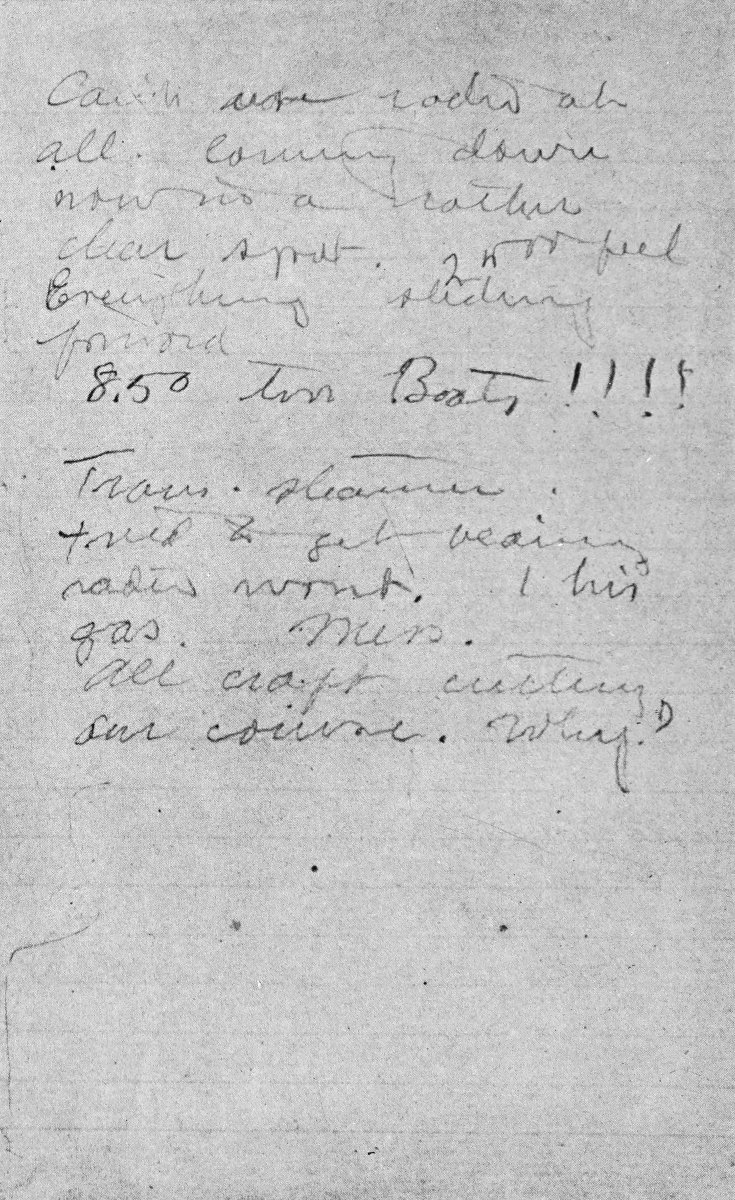 Can't use radio at
all. Coming down
now in a rather
clear spot. 2500 feet
Everything sliding
forward
8.50 two Boats !!!!
Trans. steamer.
tried to get bearing
radio wont. 1 hrs
gas. Mess.
All craft cutting
our course. Why?